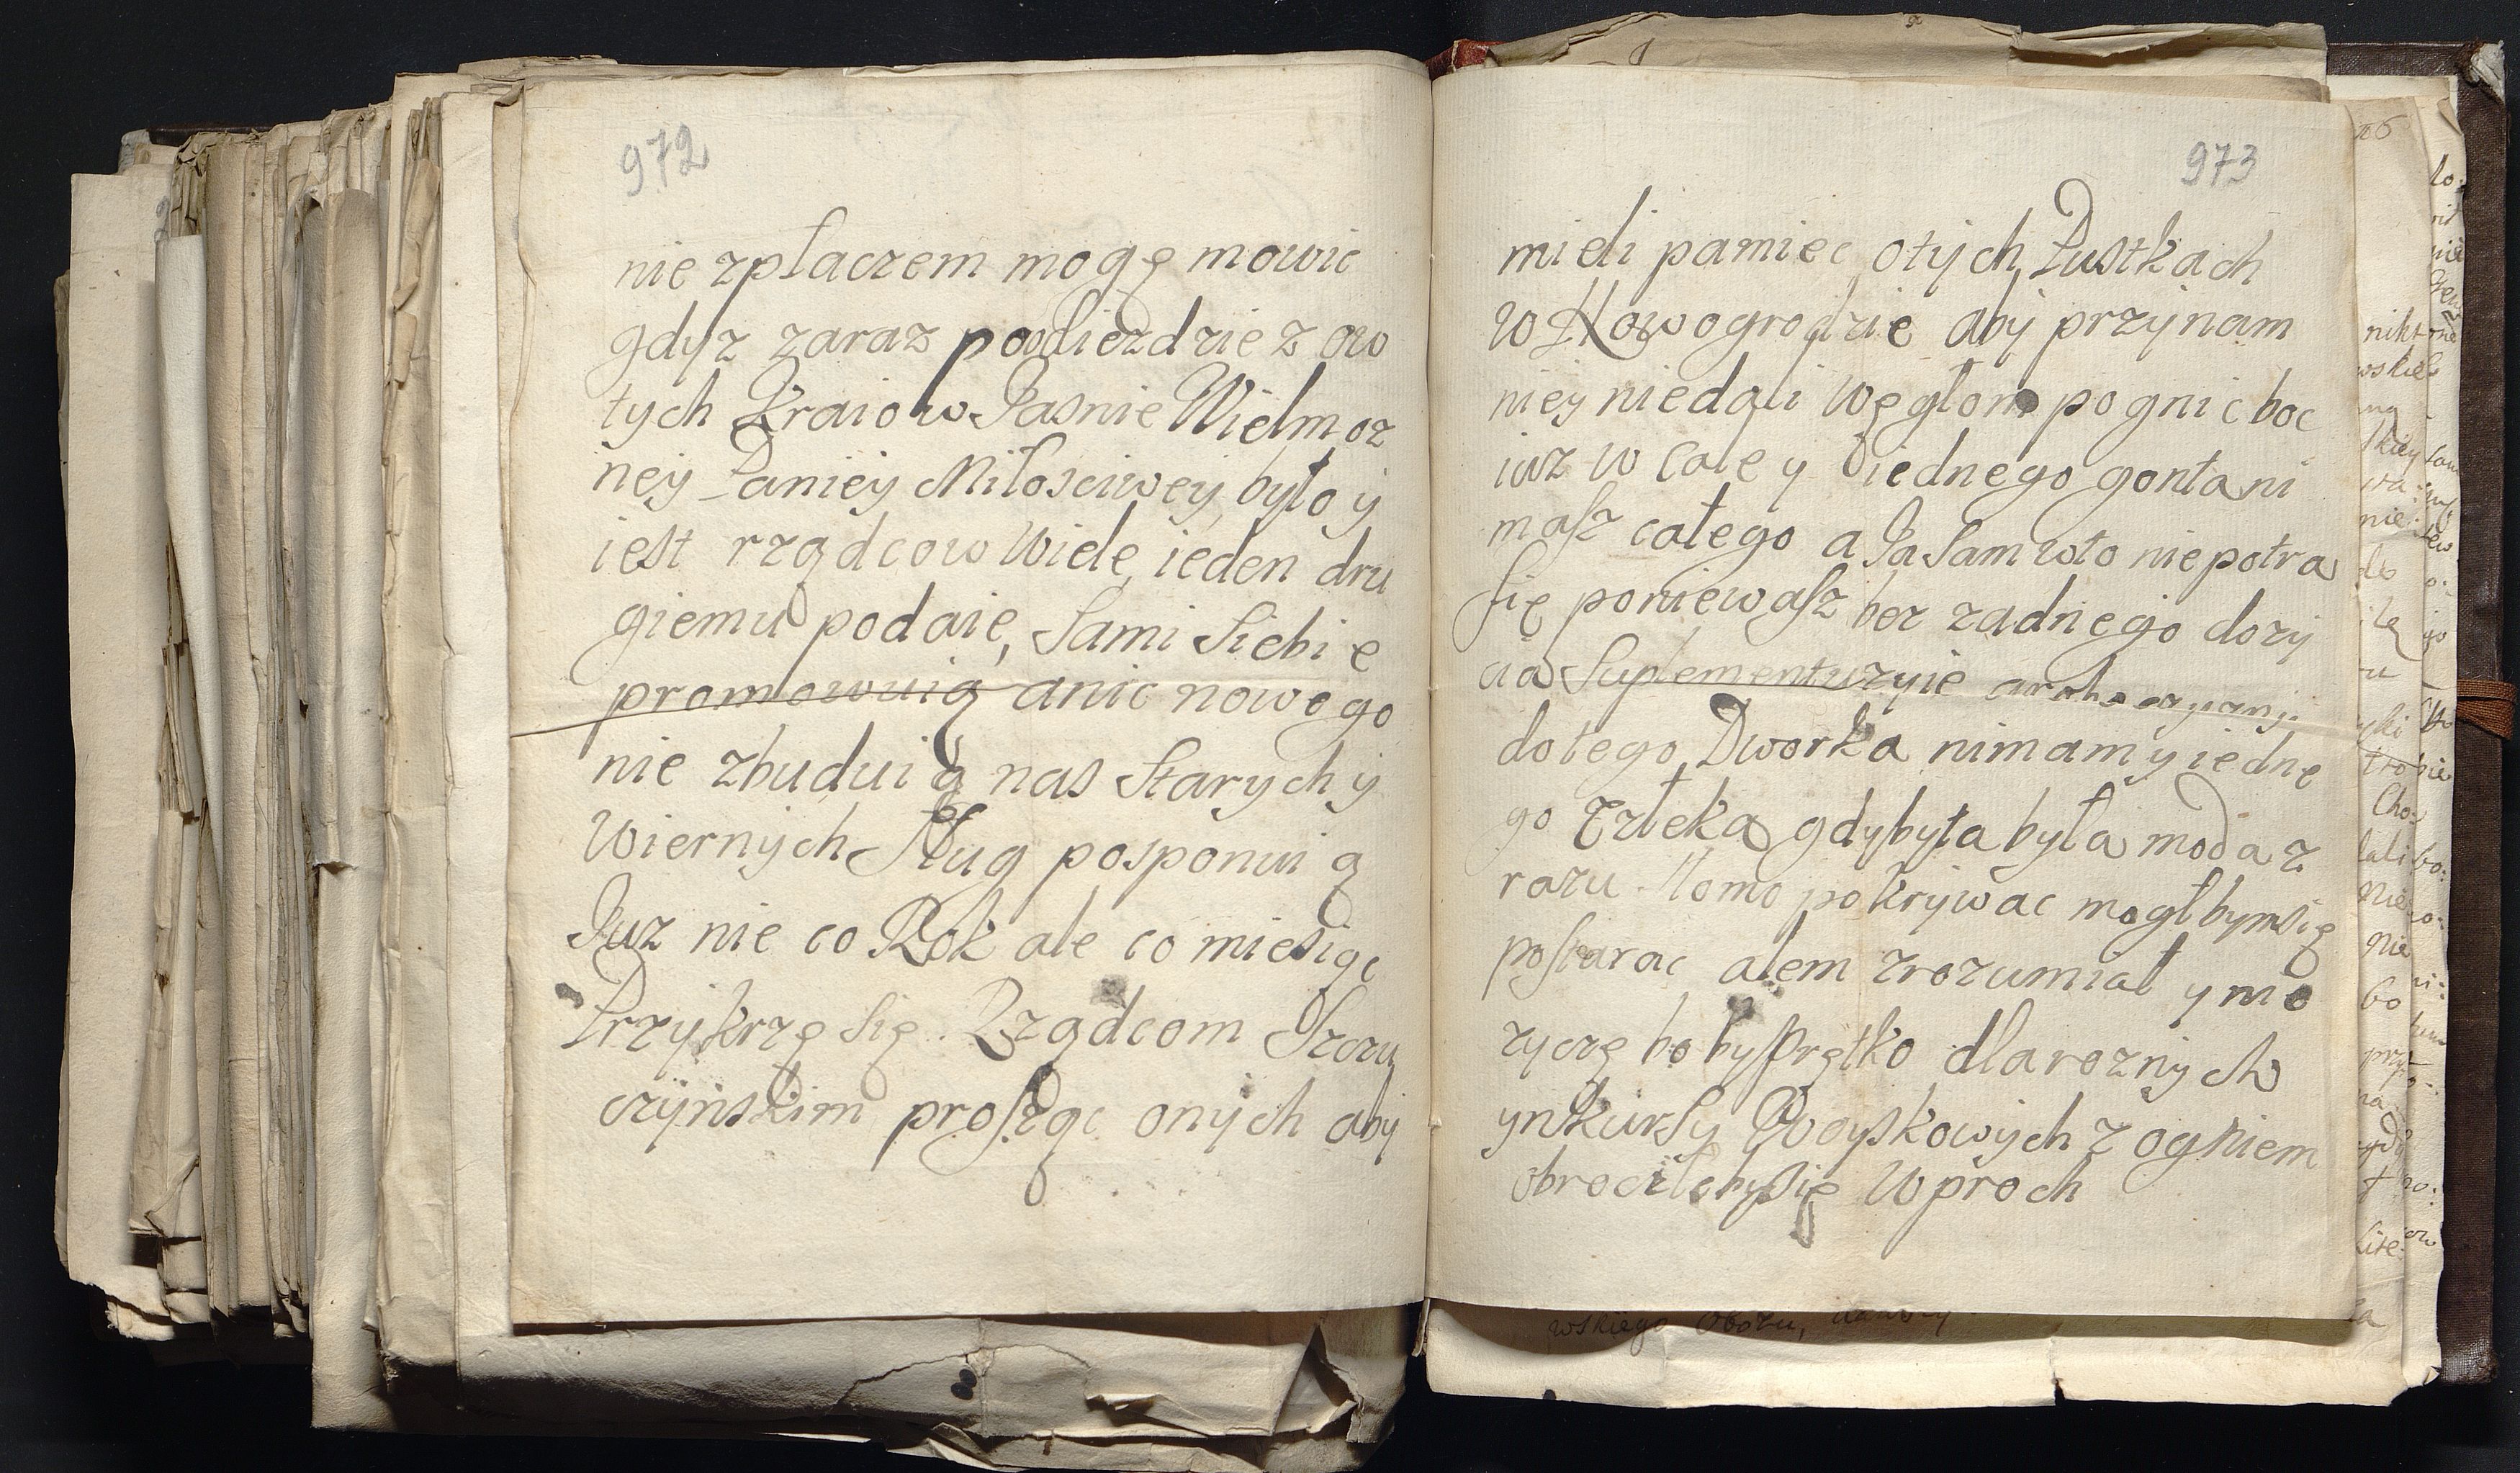 972
nie zpłaczem mogę mowic
gdyz zaraz poodiezdzie z ow
tych Kraiow Jasnie Wielmoz
ney Paniey Miłosciwey, było y
iest rządcow Wiele ieden dru
giemu podaie, Sami Siebie
promowuią anic nowego
nie zbuduią nas Starych y
Wiernych Sług posponuią
Juz nie co Rok ale co miesiąc
Przykrzę Się Rządcom Szczu
czynskim proszqc onych aby
973
mieli pamiec otych Pustkach
W Nowogrodzie aby przynam
niey niedali Węgłom pognic boc
iuz w całey iednego gonta ni
masz całego a Ja Sam wto niepotra
fię poniewasz bez zadnego dozy
cia Suplementu zyie
dotego Dworka nimam y iedne
go Człeka gdybyta była moda z
razu pokrywac mogłbymsię
postarac alem zrozumiał y nie
zyczę bo by Prętko dla roznych
ynkursy Woyskowych z ogniem
obrociłobysię W proch
wskiego Obozu,